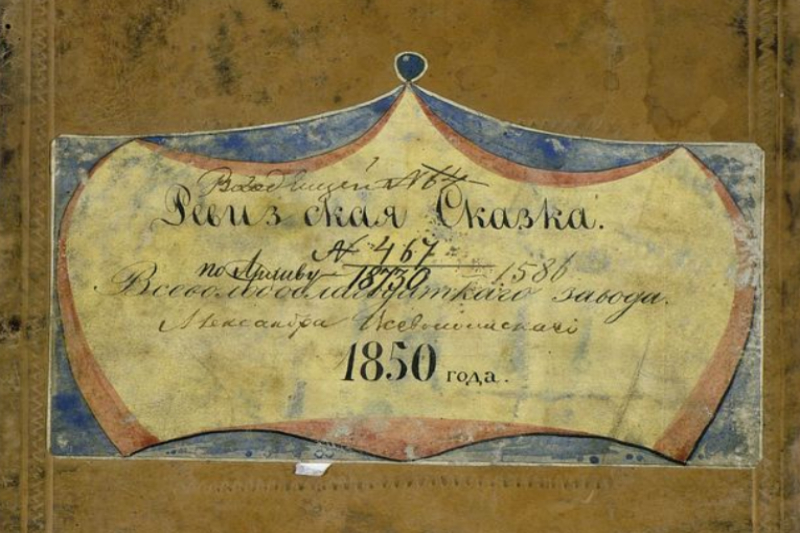 № 64
Ревизская Сказка.
№ 467
по Архиву 18730 — 1586
завода.
Александра Всеволожскаго
1850 года.